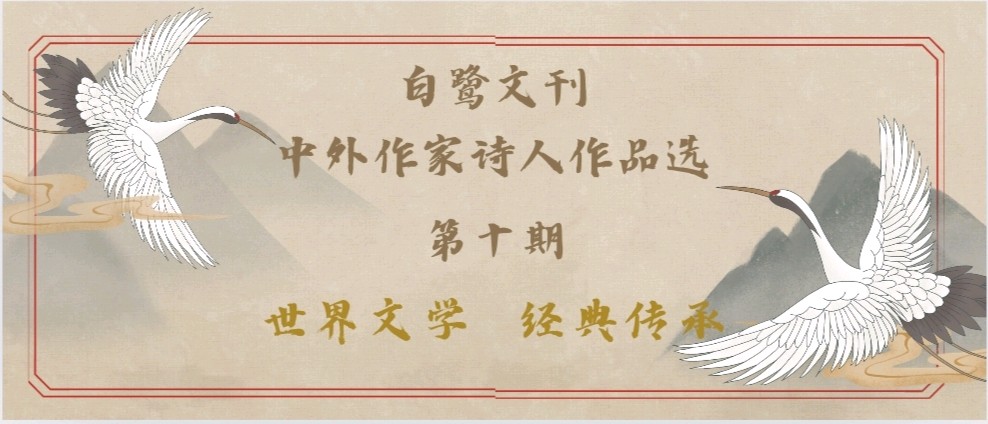 白鹭文刊
中外作家诗人作品选
第十期
世界文学 经典传承